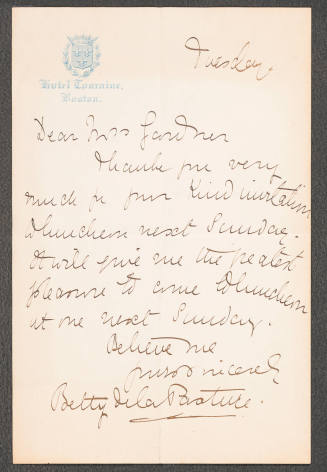 Hotel Touraine,
Boston.
Tuesday
Dear Mrs Gardner
Thank you very
much for your kind invitation
to luncheon next Sunday.
It will give me the greatest
pleasure to come to luncheon
at one next Sunday.
Believe me
yours sincerely
Betty de la Pasture.